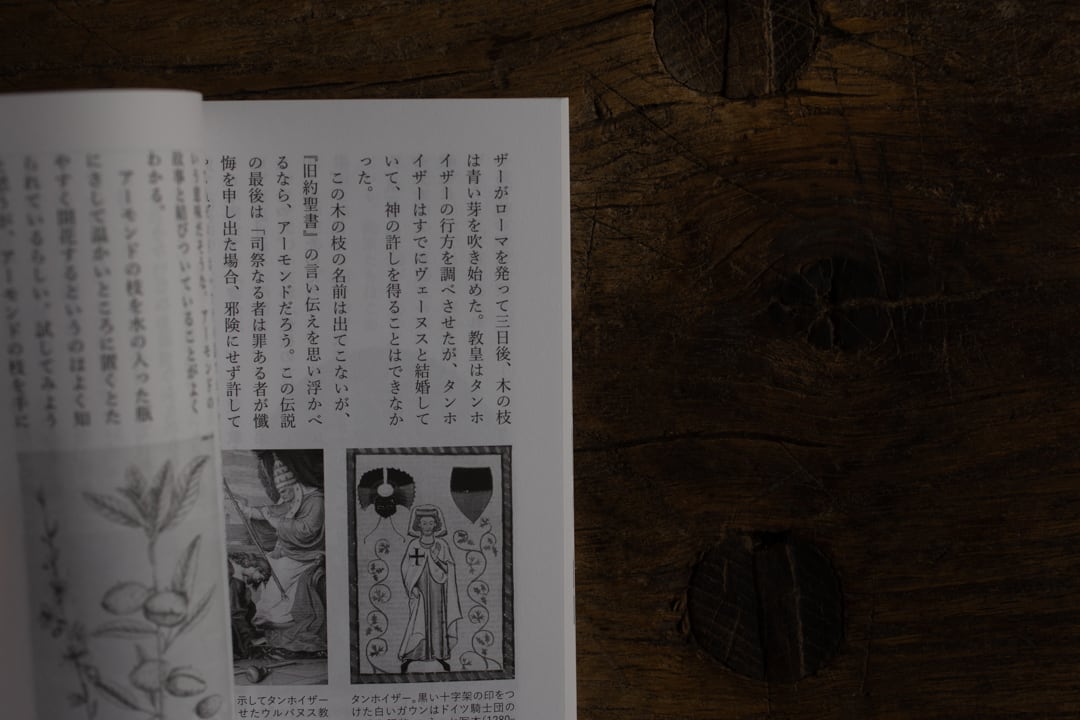 ザーがローマを発って三日後、木の枝
は青い芽を吹き始めた。教皇はタンホ
イザーの行方を調べさせたが、タンホ
イザーはすでにヴェーヌスと結婚して
いて、神の許しを得ることはできなか
った。
この木の枝の名前は出てこないが、
『旧約聖書』の言い伝えを思い浮かべ
るなら、アーモンドだろう。この伝説
の最後は「司祭なる者は罪ある者が懺
悔を申し出た場合、邪険にせず許して
タンホイザー。黒い十字架の印をつ
けた白いガウンはドイツ騎士団の
示してタンホイザー
せたウルバヌス教
故事と結びついていることがよく
わかる。
アーモンドの枝を水の入った瓶
にさして温かいところに置くとた
やすく開花するというのはよく知
られているらしい。試してみよう
アーモンドの枝を手に